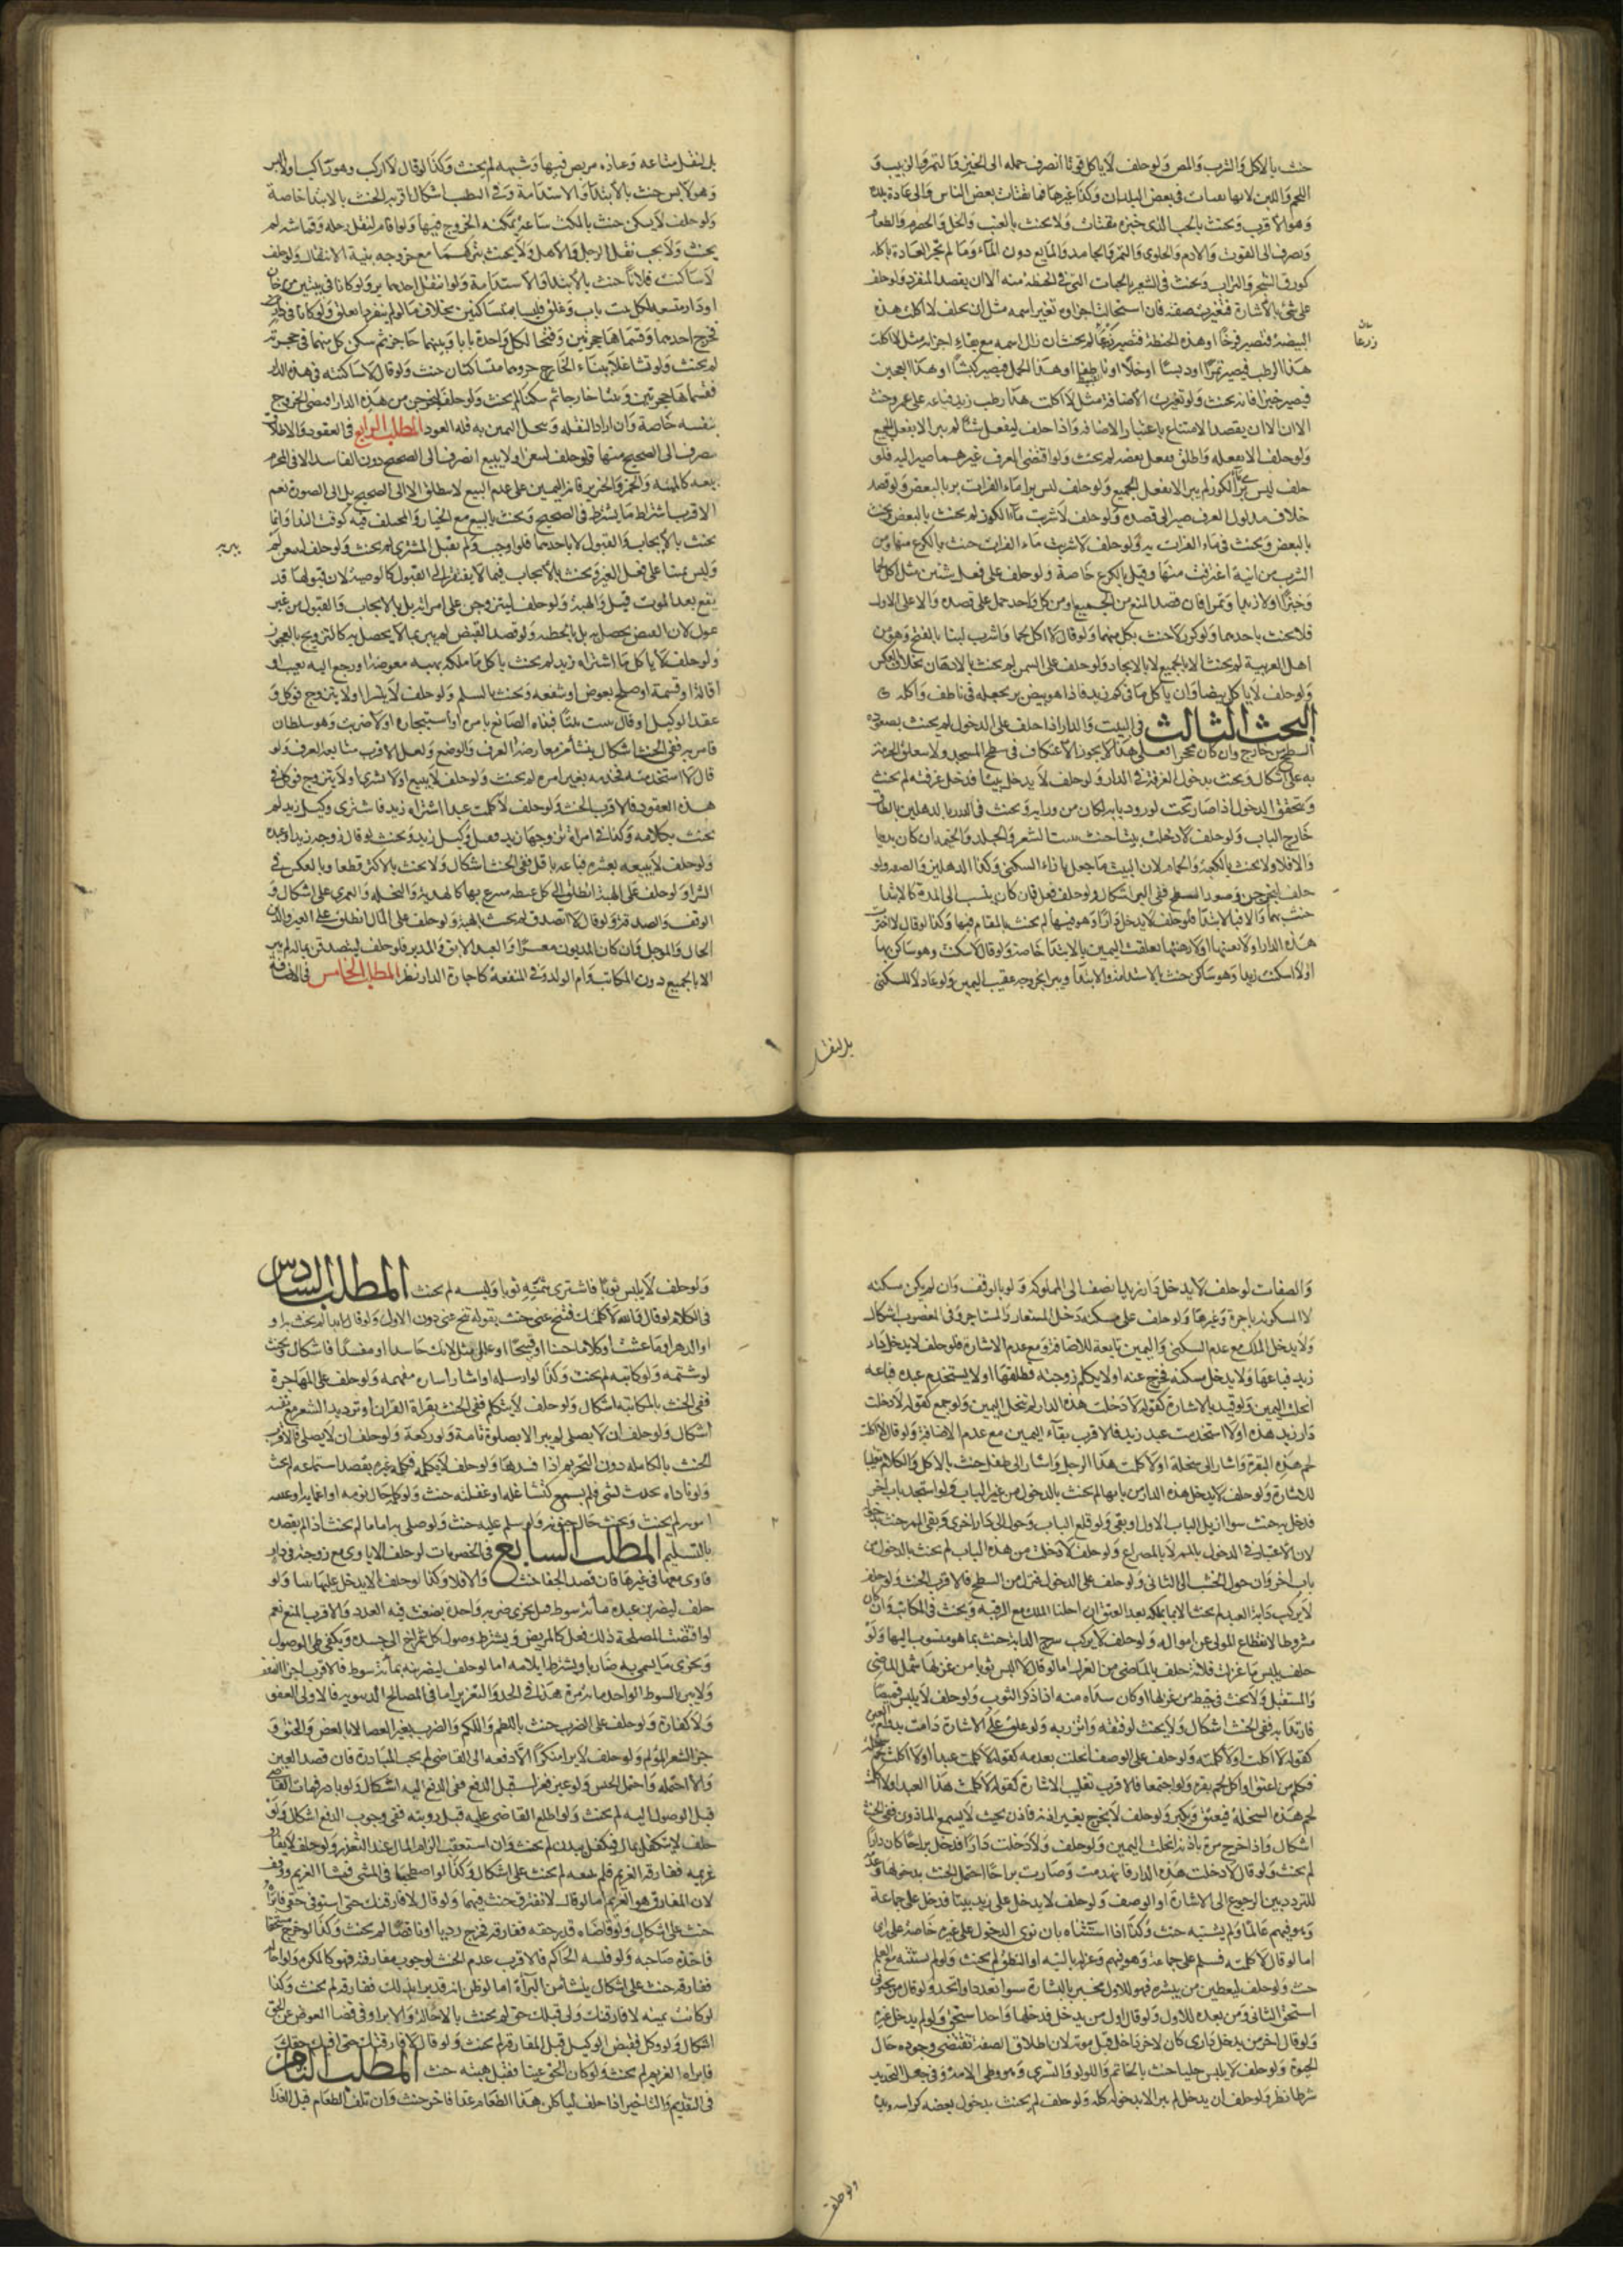 حنث بالاكل والشرب والمص ولو حلف لا ياكل قوتا انصرف حمله الى الخبز والتمر والزبيب و
اللحم واللبن لانها تقتات في بعض البلدان وكذا غيرها مما يقتات بعض الناس والى عادة بلده
وهو الاقرب ويحنث بالحب الذي خبزه مقتات ولا يحنث بالعنب والخل والحصرم والطعام
يصرف الى القوت والادم والحلوى والتمر والجامد والمايع دون الماء وما لم تجر العادة باكله
كورق الشجر والتراب ويحنث في الشعير بالحبات التي في الحنطة منه الا ان يقصد المنفرد ولو حلف
على شي بالاشارة فتغيرت صفته فان استحالت اجزاوه وتغير اسمه مثل ان يحلف لا اكلت هذه
البيضة فتصير فرخا او هذه الحنطة فتصير زرعا لم يحنث ان زال اسمه مع بقاء اجزائه مثل لا اكلت
هذا الرطب فيصير تمرا او دبسا او خلا او ناطفا او هذا الحمل فيصير كبشا او هذا العجين
فيصير خبزا فانه يحنث ولو تغيرت الاضافة مثل لا اكلت هذا رطب زيد فباعه على عمرو حنث
الا ان يقصد الامتناع باعتبار الاضافة واذا حلف ليفعل شيا لم يبر الا بفعل الجميع
ولو حلف لا يفعله واطلق ففعل بعضه لم يحنث ولو اقتضى العرف غيرهما صير اليه فلو
حلف ليشربن ماء الكوز لم يبر الا بفعل الجميع ولو حلف ليشربن ماء الفرات بر بالبعض ولو قصد
خلاف مدلول العرف صير الى قصده ولو حلف لا شربت ماء الكوز لم يحنث بالبعض ويحنث
بالبعض ويحنث في ماء الفرات به ولو حلف لا شربت ماء الفرات حنث بالكرع منها ومن
الشرب من انية اغترفت منها وقيل بالكرع خاصة ولو حلف على فعل شيئين مثل لا اكل لحما
وخبزا او لا زبدا وتمرا فان قصد المنع من الجميع او من كل واحد حمل على قصده والا على الاول
فلا يحنث باحدهما ولو كرر لا حنث بكل منهما ولو قال لا اكل لحما واشرب لبنا بالفتح وهو من
اهل العربية لم يحنث الا بالجميع لا بالايحاد ولو حلف على السمن لم يحنث بالادهان بخلاف العكس
ولو حلف لا ياكل بيضا وان ياكل ما في كم زيد فاذا هو بيض بر بجعله في ناطف واكله
البحث الثالث في البيت والدار اذا حلف على الدخول لم يحنث بصعود
السطح من خارج وان كان محجرا فعلى هذا لا يجوز الاعتكاف في سطح المسجد ولا تتعلق الحرمة
به على اشكال ويحنث بدخول الغرفة في الدار ولو حلف لا يدخل بيتا فدخل غرفته لم يحنث
ويتحقق الدخول اذا صار تحت لو رد بابه لكان من ورايه ويحنث في الدار بالدهليز لا بالطاق
خارج الباب ولو حلف لا دخلت بيتا حنث ببيت الشعر والجلد والخيمة ان كان بدويا
والا فلا ولا يحنث بالكعبة والحمام لان البيت ما جعل بازاء السكنى وكذا الدهليز والصفة ولو
حلف ليخرجن فصعد السطح ففي البر اشكال ولو حلف فعل فان كان ينسب الى المدة كالابتدا
حنث بهما والا فبالابتدا فلو حلف لا يدخل دارا وهو فيها لم يحنث بالمقام فيها وكذا لو قال لا اجرت
هذه الدار او لا بعتها او لا رهنتها تعلقت اليمين بالابتدا خاصة ولو قال لا سكنت وهو ساكن بها
او لا اسكنت زيدا وهو ساكن حنث بالاستدامة والابتدا ويبر بخروجه عقيب اليمين ولو عاد لا للسكنى
زرعا
بل لنقل
بل لنقل متاعه وعاده مريض فيها وشبهه لم يحنث وكذا لو قال لا اركب وهو راكب او لا البس
وهو لابس حنث بالابتدا والاستدامة وفي التطيب اشكال اقربه الحنث بالابتدا خاصة
ولو حلف لا يسكن حنث بالمكث ساعة يمكنه الخروج فيها ولو اقام لنقل رحله وقماشه لم
يحنث ولا يجب نقل الرحل والاهل ولا يحنث بتركهما مع خروجه بنية الانتقال ولو حلف
لا ساكنت فلانا حنث بالابتدا والاستدامة ولو انتقل احدهما بر ولو كانا في بيتين من خان
او دار متسعة لكل بيت باب وغلق فليسا متساكنين بخلاف ما لو لم ينفردا بغلق ولو كانا في دار
فخرج احدهما وقسماها حجرتين وفتحا لكل واحدة بابا وبينهما حاجز ثم سكن كل منهما في حجرته
لم يحنث ولو تشاغلا ببناء الحاجز وهما متساكنان حنث ولو قال لا ساكنته في هذه الدار
فقسماها حجرتين وبنيا حاجزا ثم سكنا لم يحنث ولو حلف ليخرجن من هذه الدار اقتضى الخروج
بنفسه خاصة وان اراد النقلة وتنحل اليمين به فله العود المطلب الرابع في العقود والاطلاق
ينصرف الى الصحيح منها فلو حلف ليبيعن او لا يبيع انصرف الى الصحيح دون الفاسد الا في المحرم
بيعه كالميتة والخمر والخنزير فان اليمين على عدم البيع لا ينطلق الا الى الصحيح بل الى الصورة نعم
الاقرب اشتراط ما يشترط في الصحيح ويحنث بالبيع مع الخيار والمختلف فيه كوقت الندا وانما
يحنث بالايجاب والقبول لا باحدهما فلو اوجب ولم يقبل المشتري لم يحنث ولو حلف ليبيعن لم
وليس يمينا على فعل الغير ويحنث بالايجاب فيما لا يفتقر الى القبول كالوصية لان قبولها قد
يقع بعد الموت قيل والهبة ولو حلف ليتزوجن على امراته بل بالايجاب والقبول من غير
دخول لان الغرض يحصل به بل بالخطبة ولو قصد الغيض لم يبر بما لا يحصل به كالتزويج بالعجوز
ولو حلف لا ياكل ما اشتراه زيد لم يحنث باكل ما ملكه بهبة معوضة او رجع اليه بعيب او
اقالة او قسمة او صلح بعوض او شفعة ويحنث بالسلم ولو حلف لا يشتري او لا يتزوج فوكل و
عقد الوكيل او قال بنيت بيتا فبناه الصانع بامره او استيجاره او لا ضربت وهو سلطان
فامر به ففي الحنث اشكال ينشأ من معارضة العرف والوضع ولعل الاقرب متابعة العرف ولو
قال لا استخدمته فخدمه بغير امره لم يحنث ولو حلف لا يبيع او لا يشتري او لا يتزوج فتوكل في
هذه العقود فالاقرب الحنث ولو حلف لا كلمت عبدا اشتراه زيد فاشترى وكيل زيد لم
يحنث بكلامه وكذا في امراة تزوجها زيد فقبل وكيل زيد ويحنث لو قال زوجة زيد او عبده
ولو حلف لا يبيعه بعشرة فباعه باقل ففي الحنث اشكال ولا يحنث بالاكثر قطعا وبالعكس في
الشرا ولو حلف على الهبة انطلق الى كل عطية متبرع بها كالهدية والنحلة والعمرى على اشكال و
الوقف والصدقة ولو قال لا اتصدق لم يحنث بالهبة ولو حلف على المال انطلق على العين والدين
الحال والموجل وان كان المديون معسرا والعبد الابق والمدبر فلو حلف ليتصدقن بماله لم يبر
الا بالجميع دون المكاتب وام الولد وفي المنفعة كاجارة الدار نظر المطلب الخامس في الاضافة
والصفات لو حلف لا يدخل دار زيد انصرف الى المملوكة ولو بالوقف وان لم يكن سكنه
لا المسكونة باجرة وغيرها ولو حلف على مسكنه دخل المستعار والمستاجر وفي المغصوب اشكال
ولا يدخل الملك مع عدم السكنى واليمين تابعة للاضافة ومع عدم الاشارة فلو حلف لا يدخل دار
زيد فباعها ولا يدخل مسكنه فخرج عنه او لا يكلم زوجته فطلقها او لا يستخدم عبده فباعه
انحلت اليمين ولو قيد بالاشارة كقوله لا دخلت هذه الدار لم تنحل اليمين ولو جمع كقوله لا دخلت
دار زيد هذه او لا استخدمت عبد زيد فالاقرب بقاء اليمين مع عدم الاضافة ولو قال لا اكلت
لحم هذه البقرة واشار الى سخلة او لا كلمت هذا الرجل واشار الى طفل حنث بالاكل والكلام تغليبا
للاشارة ولو حلف لا يدخل هذه الدار من بابها لم يحنث بالدخول من غير الباب ولو استجد باب اخر
فدخل به حنث سوا ازيل الباب الاول او بقي ولو قلع الباب وحول الى دار اخرى وبقي الممر حنث بدخوله
لان الاعتبار في الدخول بالممر لا بالمصراع ولو حلف لا دخلت من هذه الباب لم يحنث بالدخول من
باب اخر وان حول الخشب الى الثاني ولو حلف على الدخول فنزل من السطح فالاقرب الحنث ولو حلف
لا يركب دابة العبد لم يحنث الا بما يملكه بعد العتق ان احلنا الملك مع الرقية ويحنث في المكاتب وان كان
مشروطا لانقطاع المولى عن امواله ولو حلف لا يركب سرج الدابة حنث بما هو منسوب اليها ولو
حلف يلبس ما غزلت فلانة حلف بالماضي من الغزل اما لو قال لا البس ثوبا من غزلها شمل الماضي
والمستقبل ولا يحنث فيما خيط من غزلها او كان سداه منه اذا ذكر الثوب ولو حلف لا يلبس قميصا
فارتدا به ففي الحنث اشكال ولا يحنث لو فتقه واتزر به ولو علق على الاشارة دامت بدوام العين
كقوله لا اكلت او لا كلمته ولو حلف على الوصف انحلت بعدمه كقوله لا كلمت عبدا او لا اكلت لحم سخلة
فكلم من اعتق او اكل لحم بقرة ولو اجتمعا فالاقرب تغليب الاشارة كقوله لا كلمت هذا العبد او لا اكلت
لحم هذه السخلة فيعتق ويكبر ولو حلف لا يخرج بغير اذنه فاذن بحيث لا يسمع الماذون ففي الحنث
اشكال واذا خرج مرة باذنه انحلت اليمين ولو حلف ولا دخلت دارا فدخل براحا كان دارا
لم يحنث ولو قال لا دخلت هذه الدار فانهدمت وصارت براحا احتمل الحنث بدخولها وعدمه
للتردد بين الرجوع الى الاشارة او الوصف ولو حلف لا يدخل على زيد بيتا فدخل على جماعة
وهو فيهم عالما ولم يستثنه حنث وكذا اذا استثناه بان نوى الدخول على غيره خاصة على راي
اما لو قال لا كلمته فسلم على جماعة وهو فيهم وعزله بالنية او النطق لم يحنث ولو لم يستثنه مع العلم
حنث ولو حلف ليعطين من يبشره فهو للاول مخبر بالبشارة سوا تعدد او اتحد ولو قال من يخبرني
استحق الثاني ومن بعده للاول ولو قال اول من يدخل فدخلها واحد استحق ولو لم يدخل غيره
ولو قال اخر من يدخل داري كان لاخر داخل قبل موته لان اطلاق الصفة تقتضي وجوده حال
الحيوة ولو حلف لا يلبس حليا حنث بالخاتم واللولو والتسري وهو وطي الامة وفي جعل التخدير
شرطا نظر ولو حلف ان يدخل لم يبر الا بدخوله كله ولو حلف لم يحنث بدخول بعضه كراسه ويده
ولو حلف
ولو حلف لا يلبس ثوبا فاشترى بثمنه ثوبا ولبسه لم يحنث المطلب السادس
في الكلام لو قال والله لا كلمتك فتنح عني حنث بقوله تنح عني دون الاول ولو قال ابدا لم يحنث به او
او الدهر او ما عشت او كلاما حسنا او قبيحا او علل مثل لانك حاسد او مفسد فاشكال ويحنث
لو شتمه ولو كاتبه لم يحنث وكذا لو ارسله او اشار اشارة مفهمة ولو حلف على المهاجرة
ففي الحنث بالمكاتبة اشكال ولو حلف لا يتكلم ففي الحنث بقراة القران او ترديد الشعر مع نفسه
اشكال ولو حلف ان لا يصلي لم يبر الا بصلوة تامة ولو ركعة ولو حلف ان لا يصلي فالاقرب
الحنث بالكاملة دون التحريم اذا افسدها ولو حلف لا يكلمه فكلم غيره بقصد استماعه لم يحنث
ولو ناداه بحيث يسمع فلم يسمع لتشاغله او غفلته حنث ولو كلمه حال نومه او اغمايه او غيبته
او موته لم يحنث ويحنث حال جنونه ولو سلم عليه حنث ولو صلى به اماما لم يحنث اذا لم يقصده
بالتسليم المطلب السابع في الخصومات لو حلف الا ياوي مع زوجته في دار
فاوى معها في غيرها فان قصد الجفا حنث والا فلا وكذا لو حلف الا يدخل عليها بيتا ولو
حلف ليضربن عبده مائة سوط قيل يجزي ضربه واحدة بضغث فيه العدد والاقرب المنع نعم
لو اقتضت المصلحة ذلك فعل كالمريض ويشترط وصول كل شمراخ الى جسده ويكفي ظن الوصول
ويجزي ما يسمى به ضاربا ويشترط ايلامه اما لو حلف ليضربنه بمائة سوط فالاقرب اجزا الضغث
ولا يبر بالسوط الواحد مائة مرة هذا في الحد والتعزير اما في المصالح الدنيوية فالاولى العفو
ولا كفارة ولو حلف على الضرب حنث باللطم واللكم والضرب بغير العصا لا بالعض والخنق و
جز الشعر المؤلم ولو حلف لا يرا منكرا الا دفعه الى القاضي لم يجب المبادرة فان قصد العين
والا احتمله واحتمل الجنس ولو عين فعزل قبل الدفع ففي الدفع اليه اشكال ولو بادر فمات القاضي
قبل الوصول اليه لم يحنث ولو اطلع القاضي عليه قبل رويته ففي وجوب الدفع اشكال ولو
حلف لا يتكفل بمال فكفل ببدن لم يحنث وان استعقب الزام المال عند التعذر ولو حلف لا يفارق
غريمه ففارقه الغريم فلم يتبعه لم يحنث على اشكال وكذا لو اصطحبا في المشي فمشا الغريم ووقف
لان المفارق هو الغريم اما لو قال لا نفترق حنث فيهما ولو قال لا فارقتك حتى استوفي حقي فابراه
حنث على اشكال ولو قاضاه قدر حقه ففارقه فخرج رديا او ناقصا لم يحنث وكذا لو خرج مستحقا
فاخذه صاحبه ولو فلسه الحاكم فالاقرب عدم الحنث لوجوب مفارقته فهو كالمكره ولو احاله
ففارقه حنث على اشكال ينشأ من البرآة اما لو ظن انه قد بر بذلك ففارقه لم يحنث وكذا
لو كانت يمينه لا فارقتك ولي قبلك حق لم يحنث بالاحالة والابرا وفي قضا العوض عن الحق
اشكال ولو وكل فقبض الوكيل قبل المفارقة لم يحنث ولو قال لا فارقتك حتى اوفيك حقك
فابراه الغريم لم يحنث ولو كان الحق عينا فقبل هبته حنث المطلب الثامن
في التقديم والتاخير اذا حلف لياكلن هذا الطعام غدا فاخر حنث وان تلف الطعام قبل الغد